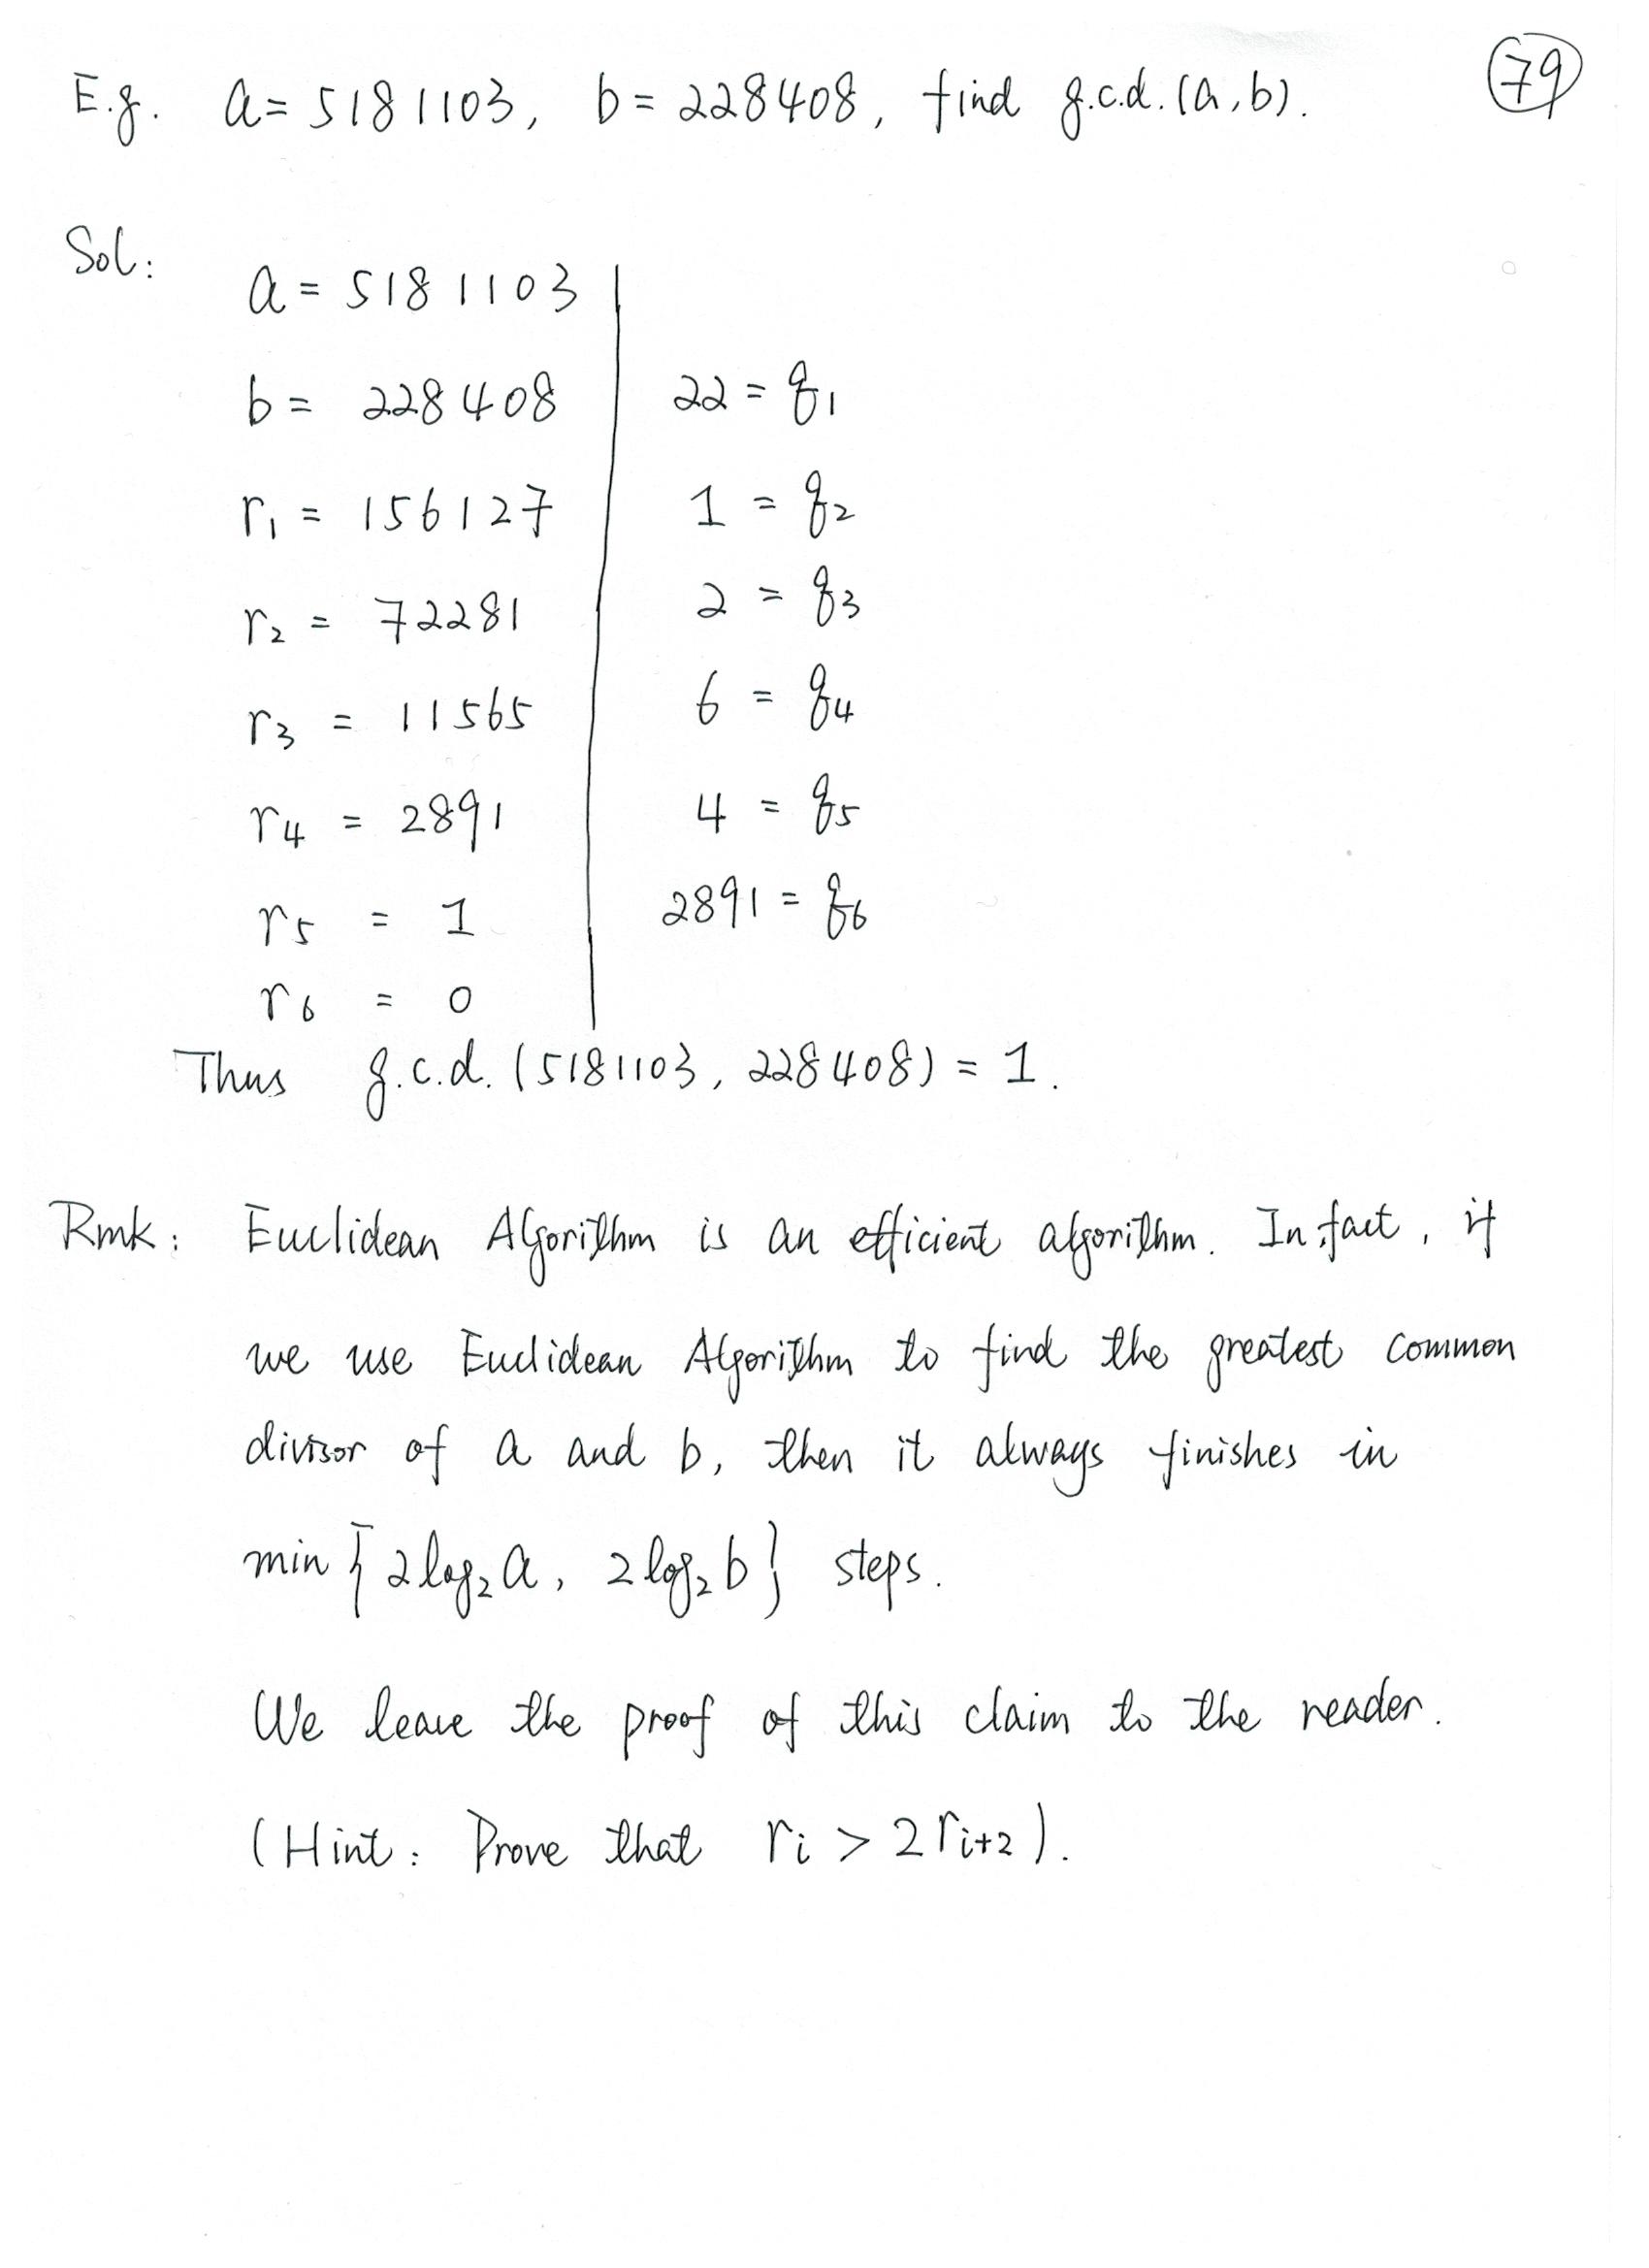 E.g. a = 5181103, b = 228408, find g.c.d. (a, b). 79
Sol:
a = 5181103
b = 228408 22 = q₁
r₁ = 156127 1 = q₂
r₂ = 72281 2 = q₃
r₃ = 11565 6 = q₄
r₄ = 2891 4 = q₅
r₅ = 1 2891 = q₆
r₆ = 0
Thus g.c.d. (5181103, 228408) = 1.
Rmk: Euclidean Algorithm is an efficient algorithm. In fact, if
we use Euclidean Algorithm to find the greatest common
divisor of a and b, then it always finishes in
min { 2 log₂ a, 2 log₂ b } steps.
We leave the proof of this claim to the reader.
(Hint: Prove that rᵢ > 2 rᵢ₊₂).